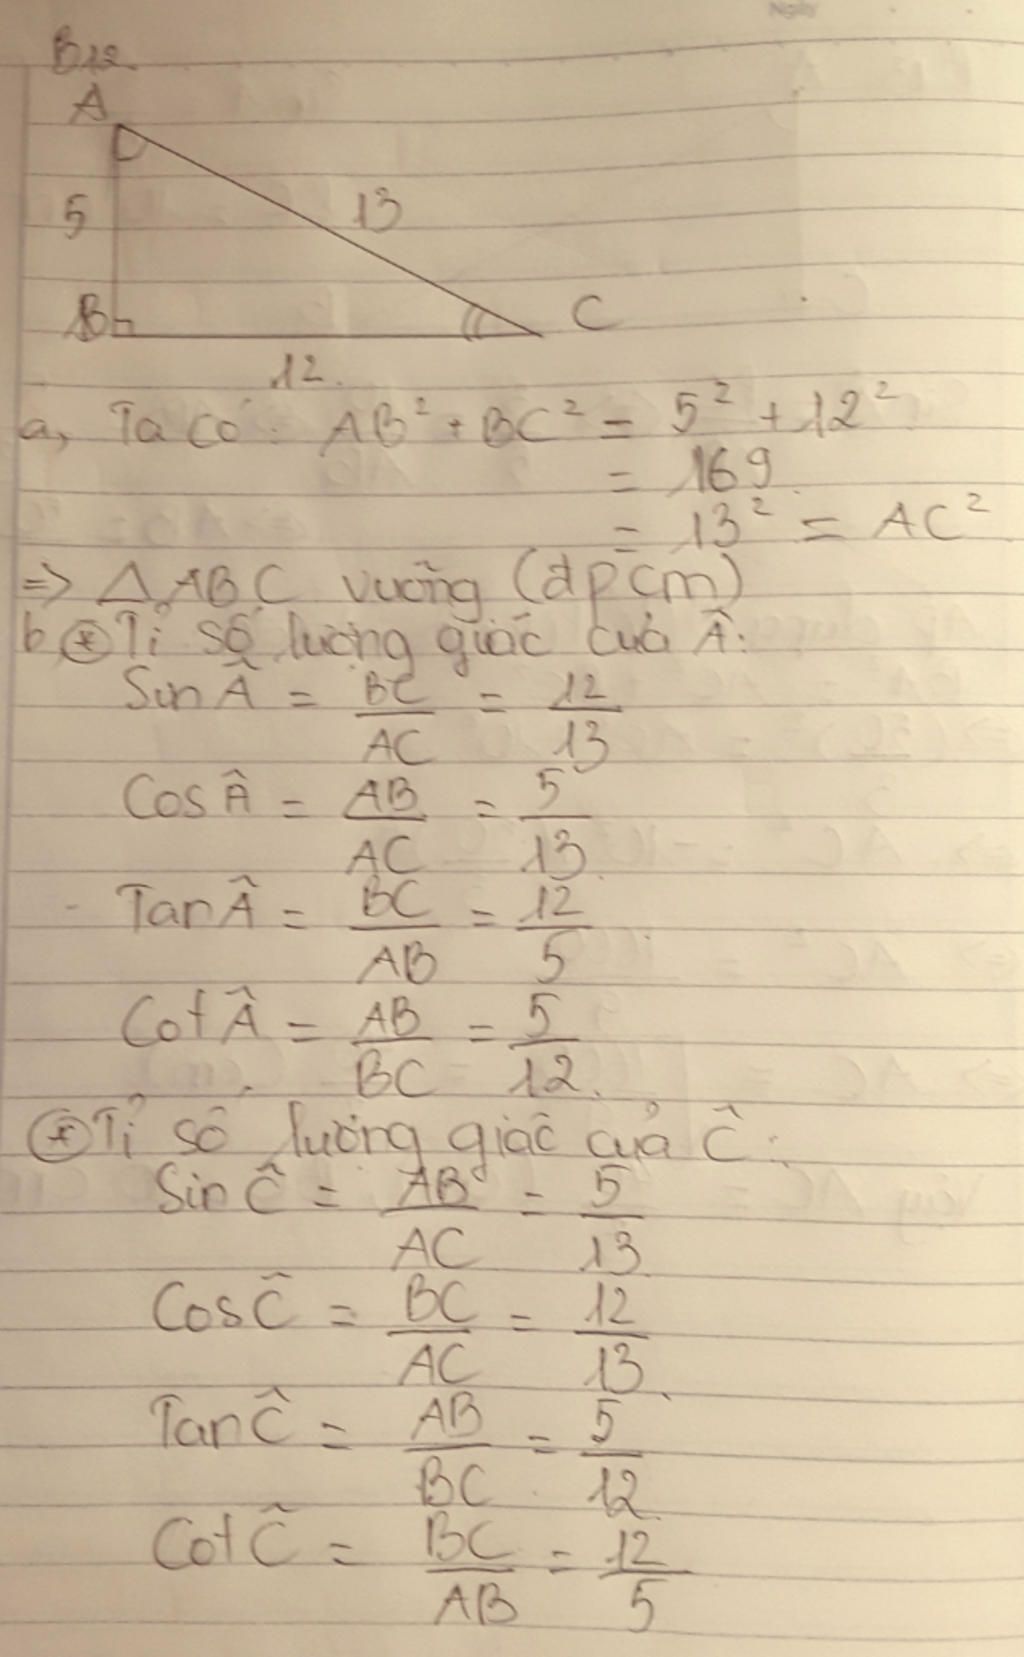 B12
A
5
13
B
C
12
a, Ta có: AB² + BC² = 5² + 12²
= 169
= 13² = AC²
=> Δ ABC vuông (đpcm)
b ⊛ Tỉ số lượng giác của Â:
Sin Â = BC/AC = 12/13
Cos Â = AB/AC = 5/13
Tan Â = BC/AB = 12/5
Cot Â = AB/BC = 5/12
⊛ Tỉ số lượng giác của Ĉ:
Sin Ĉ = AB/AC = 5/13
Cos Ĉ = BC/AC = 12/13
Tan Ĉ = AB/BC = 5/12
Cot Ĉ = BC/AB = 12/5